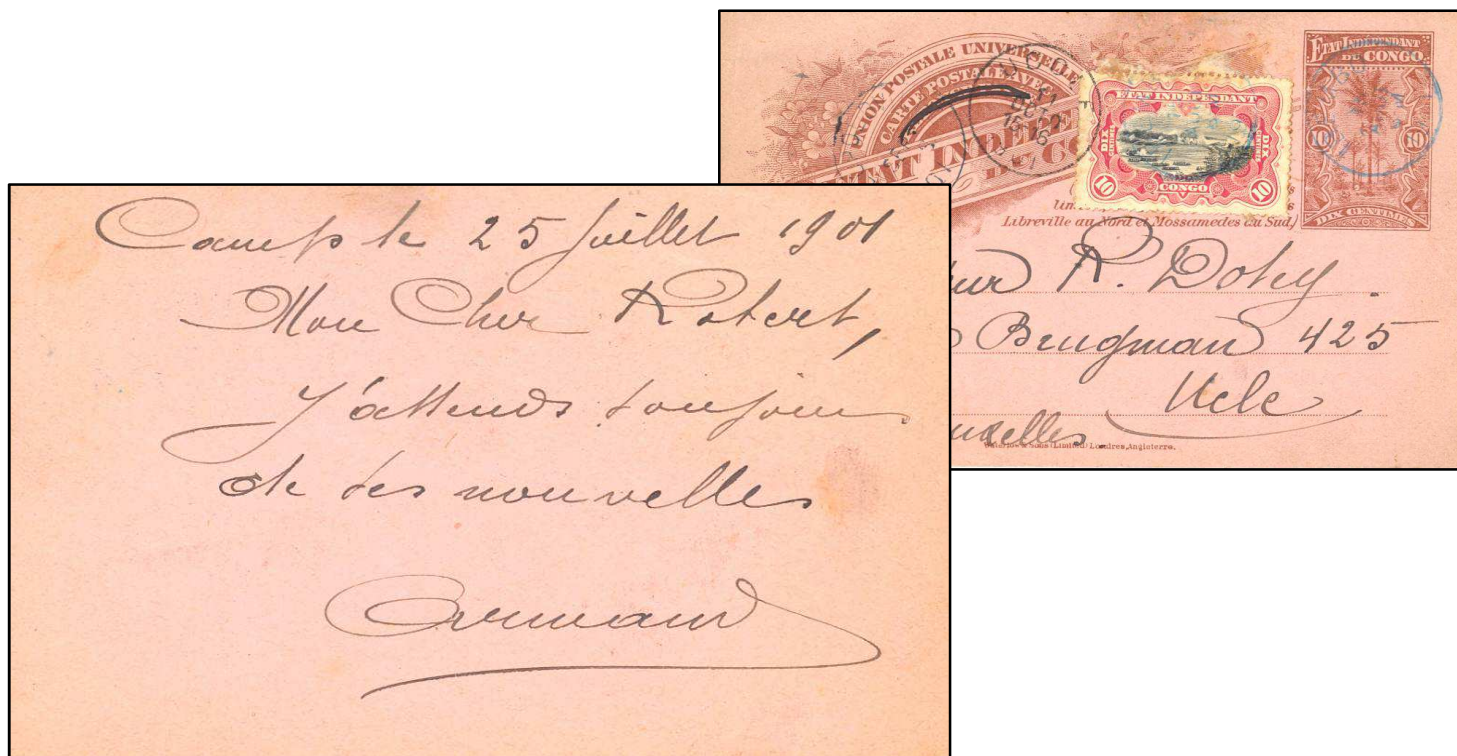 Camp le 25 Juillet 1901
Mon Cher Robert,
J'attends toujours
de tes nouvelles
Armand
UNION POSTALE UNIVERSELLE
CARTE POSTALE AVEC
ETAT INDEPENDANT
DIX CENTIMES
DIX CENTIMES
10
CONGO
10
ÉTAT INDÉPENDANT
DU CONGO
10
10
DIX CENTIMES
Libreville au Nord et Mossamedes au Sud)
R. Dohy.
Brugman 425
Uccle
Waterlow & Sons (Limited) Londres, Angleterre.